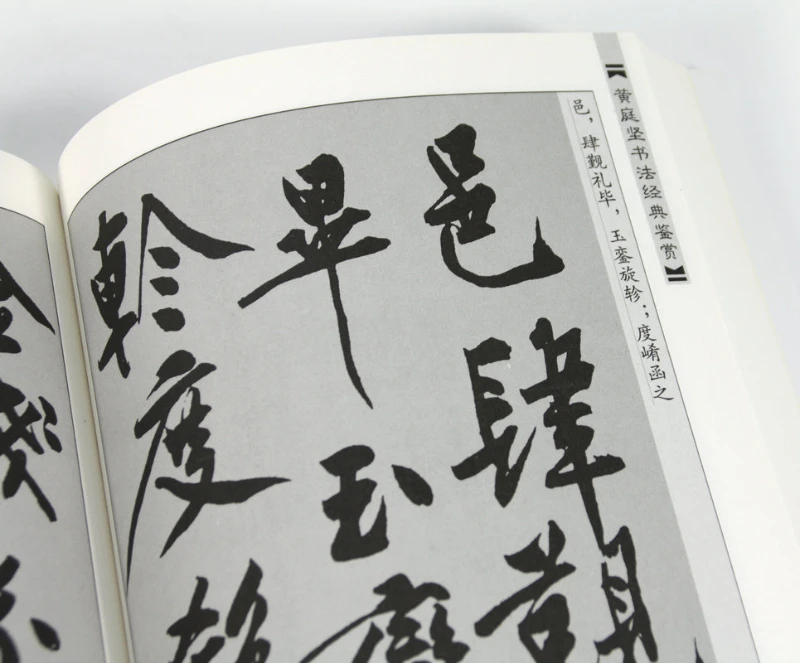 黄庭坚书法经典鉴赏
邑，肆觐礼毕，玉銮旋轸；度崤函之
邑肆覲
畢玉
軫度